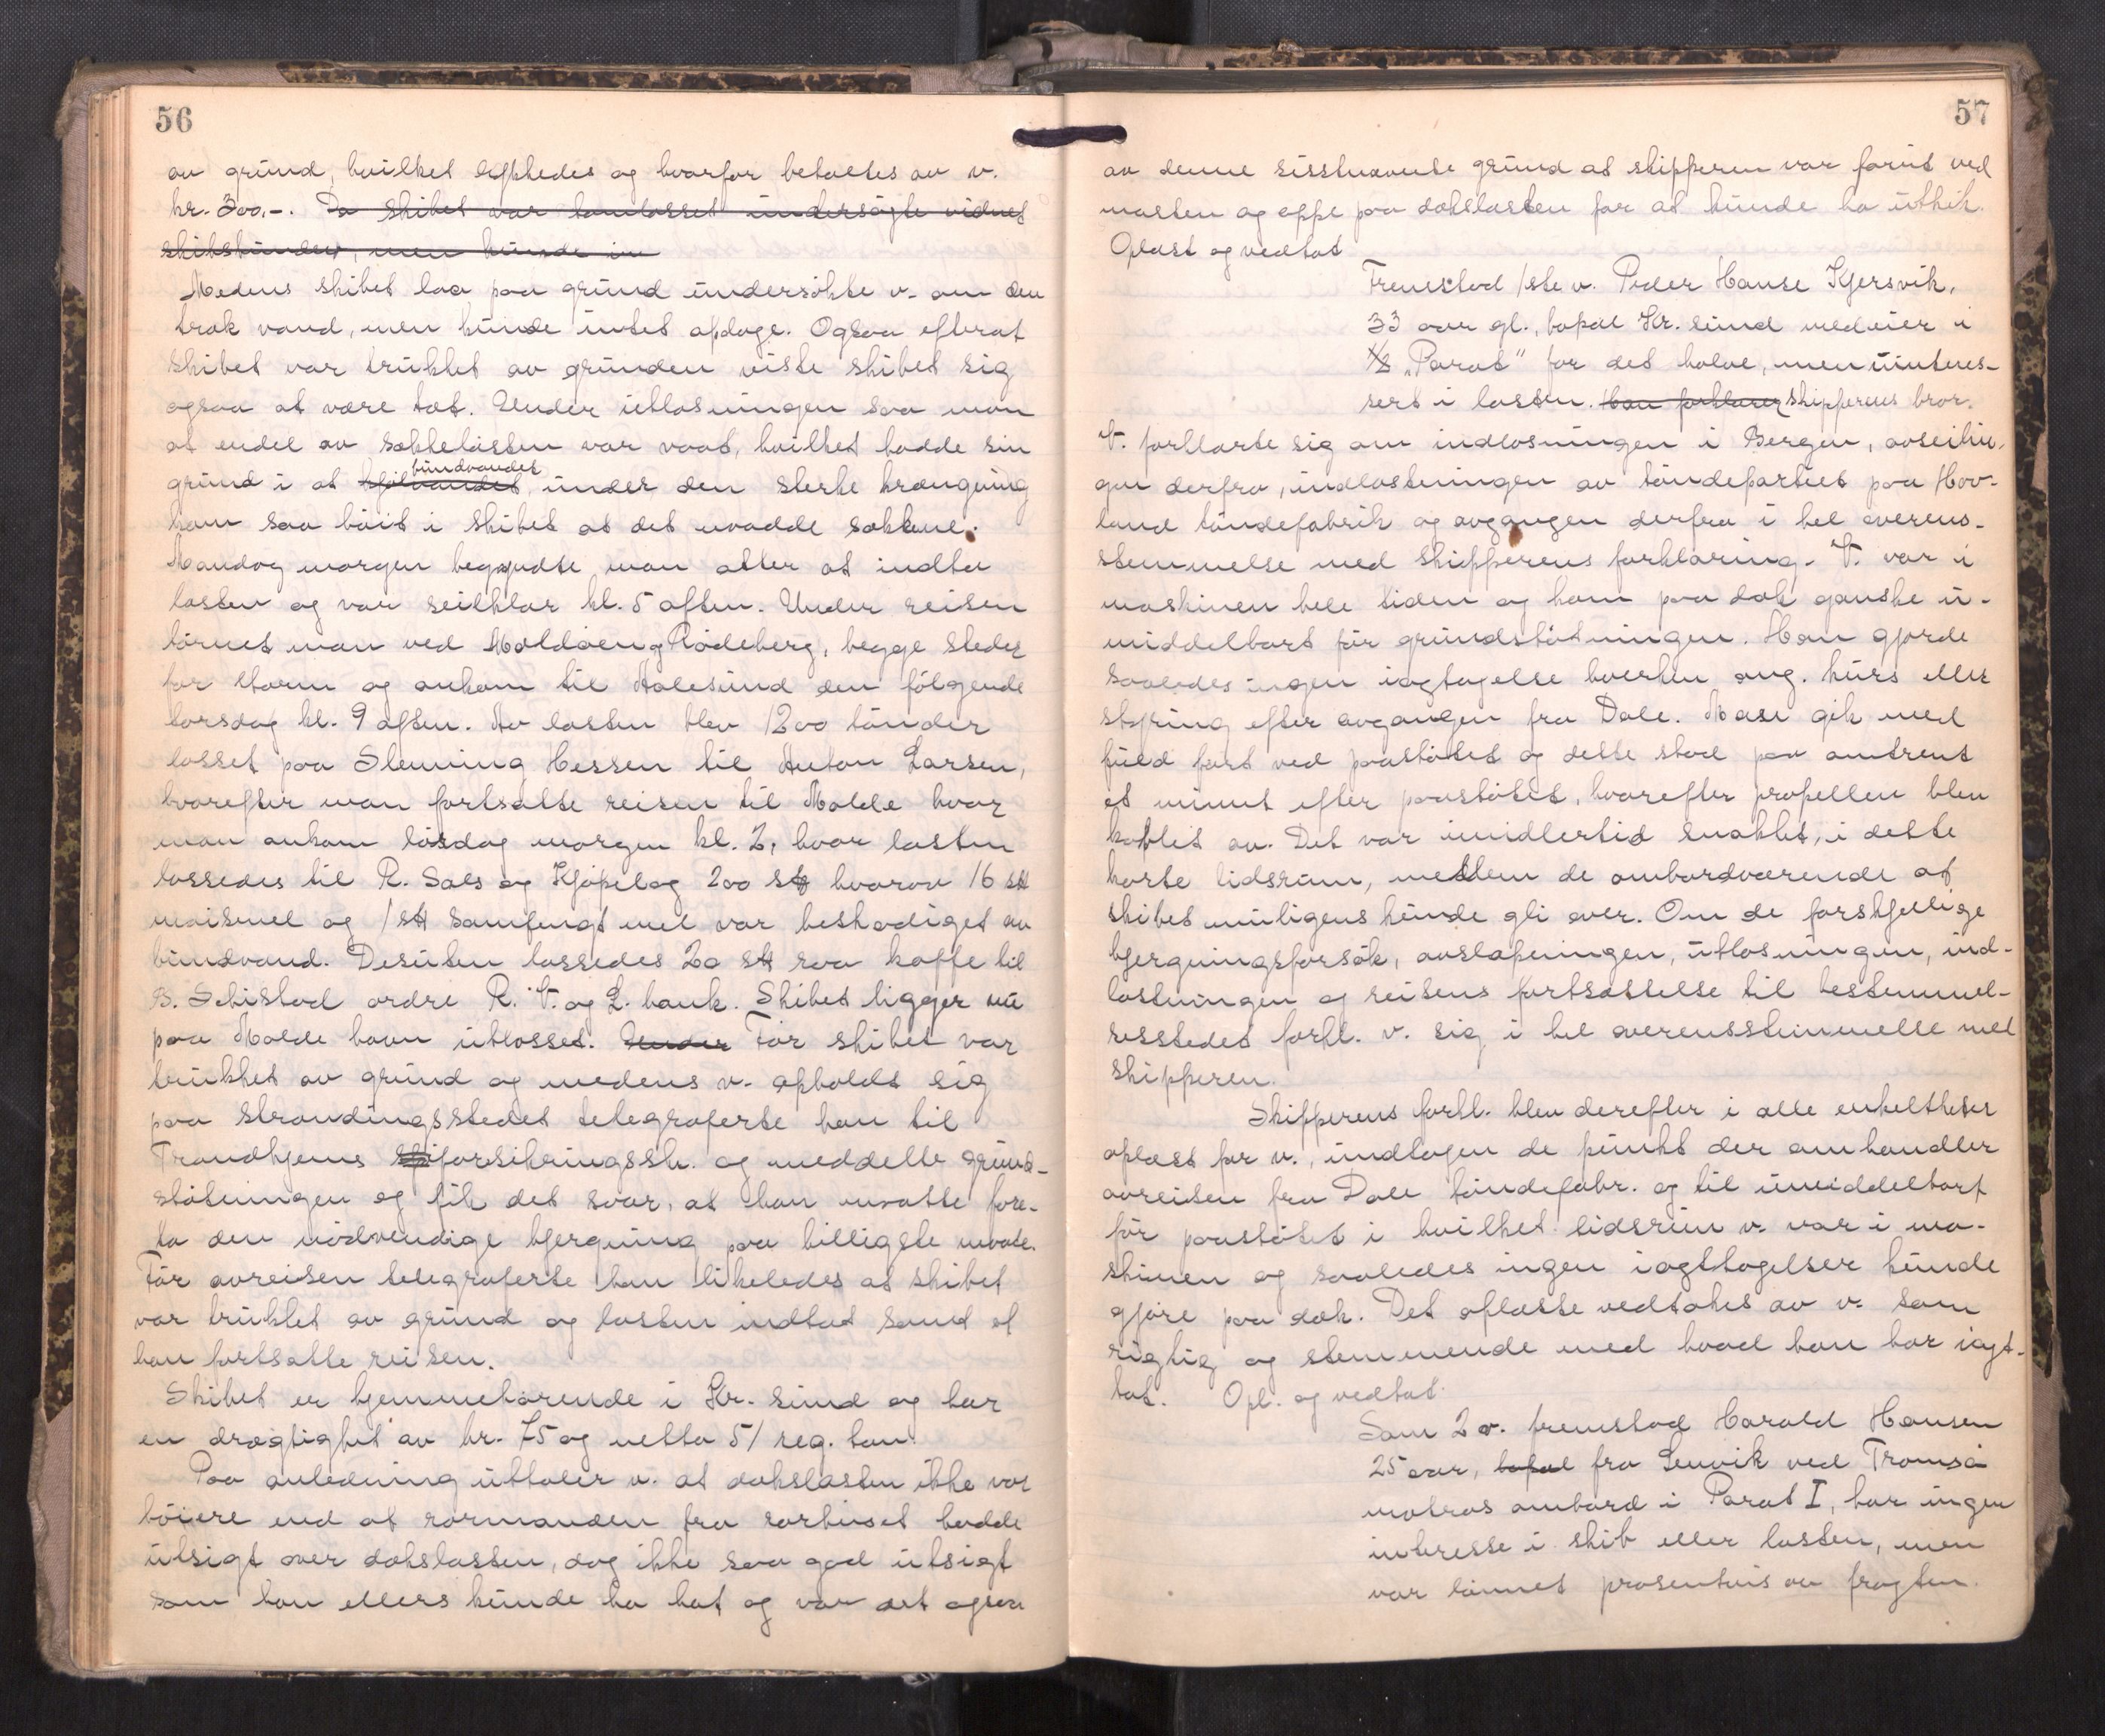 56
av grund, hvilket lykkedes og hvorfor betaltes av v.
kr. 300.-. Da skibet var tomlosset undersøgte vidnet
skibsbunden, men kunde in
Medens skibet laa paa grund undersökte v. om den
trak vand, men kunde intet opdage. Ogsaa efterat
skibet var trukket av grunden viste skibet sig
ogsaa at være tæt. Under utlosningen saa man
at endel av sækkelasten var vaat, hvilket hadde sin
bundvandet
grund i at kjølvandet under den sterke krængning
kom saa høit i skibet at det naadde sækkene.
Mandag morgen begyndte man atter at indta
lasten og var seilklar kl. 5 aften. Under reisen
törnet man ved Moldöen og Rödeberg, begge steder
for storm og ankom til Aalesund den følgende
torsdag kl. 9 aften. Av lasten blev 1200 tönder
losset paa Slemming Hessen til Anton Larsen,
hvorefter man fortsatte reisen til Molde hvor
man ankom lördag morgen kl. 2, hvor lasten
lossedes til R. Sæs og Kjöpelag 200 skk hvorav 16 skk
maismel og 1 skk samfengt mel var beskadiget av
bundvand. Desuten lossedes 20 skk raa kaffe til
B. Schistad ordre R. V. og L. bank. Skibet ligger nu
paa Molde havn utlosset. Under Før skibet var
trukket av grund og medens v. opholdt sig
paa strandingsstedet telegraferte han til
Trondhjems forsikringssk. og meddelte grund-
stötningen og fik det svar, at han maatte fore-
ta den nödvendige bjergning paa billigste maate.
Før avreisen telegraferte han likeledes at skibet
var trukket av grund og lasten indtat samt at
han fortsatte reisen.
Skibet er hjemmehörende i Kr. sund og har
en drægtighet av br. 75 og netto 51 reg. ton.
Paa anledning uttaler v. at dækslasten ikke var
höiere end at rormanden fra rorhuset hadde
utsigt over dækslasten, dog ikke saa god utsigt
som han ellers kunde ha hat og var det ogsaa
57
av denne sisstnævnte grund at skipperen var forut ved
masten og oppe paa dækslasten for at kunde ha utkik.
Oplæst og vedtat
Fremstod 1ste v. Peder Hanse Kjersvik,
33 aar gl., bopæl Kr. sund medeier i
"Parat" for det halve, men uinteres-
sert i lasten. Han forklarer skipperens bror.
V. forklarte sig om indlosningen i Bergen, avseilin-
gen derfra, indlastningen av tøndepartiet paa Hov-
land tøndefabrik og avgangen derfra i hel overens-
stemmelse med skipperens forklaring. V. var i
maskinen hele tiden og kom paa dæk ganske u-
middelbart før grundstötningen. Han gjorde
saaledes ingen iagtagelse hverken ang. kurs eller
styring efter avgangen fra Dale. Mase gik med
fuld fart ved paastötet og dette stod paa omtrent
et minut efter paastötet, hvorefter propellen blev
koblet av. Det var imidlertid snakket, i dette
korte tidsrum, mellem de ombordværende at
skibet muligens kunde gli over. Om de forskjellige
bjergningsforsök, avslæpningen, utlosningen, ind-
lastningen og reisens fortsættelse til bestemmel-
sesstedet forkl. v. sig i hel overensstemmelse med
skipperen.
Skipperens forkl. blev derefter i alle enkeltheter
oplæst for v., undtagen de punkt der omhandler
avreisen fra Dale tøndefabr. og til umiddelbart
før paastötet i hvilket tidsrum v. var i ma-
skinen og saaledes ingen iagttagelser kunde
gjøre paa dæk. Det oplæste vedtokes av v. som
rigtig og stemmende med hvad han har iagt-
tat. Opl. og vedtat.
Som 2 v. fremstod Harald Hansen
25 aar, bopæl fra Lenvik ved Tromsö
matros ombord i Parat I, har ingen
interesse i skib eller lasten, men
var lönnet prosentvis av fragten.